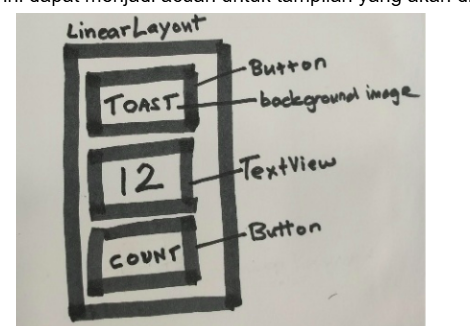 ini dapat menjadi acuan untuk tampilan yang akan di
LinearLayout
Button
TOAST
background image
12
TextView
Button
COUNT